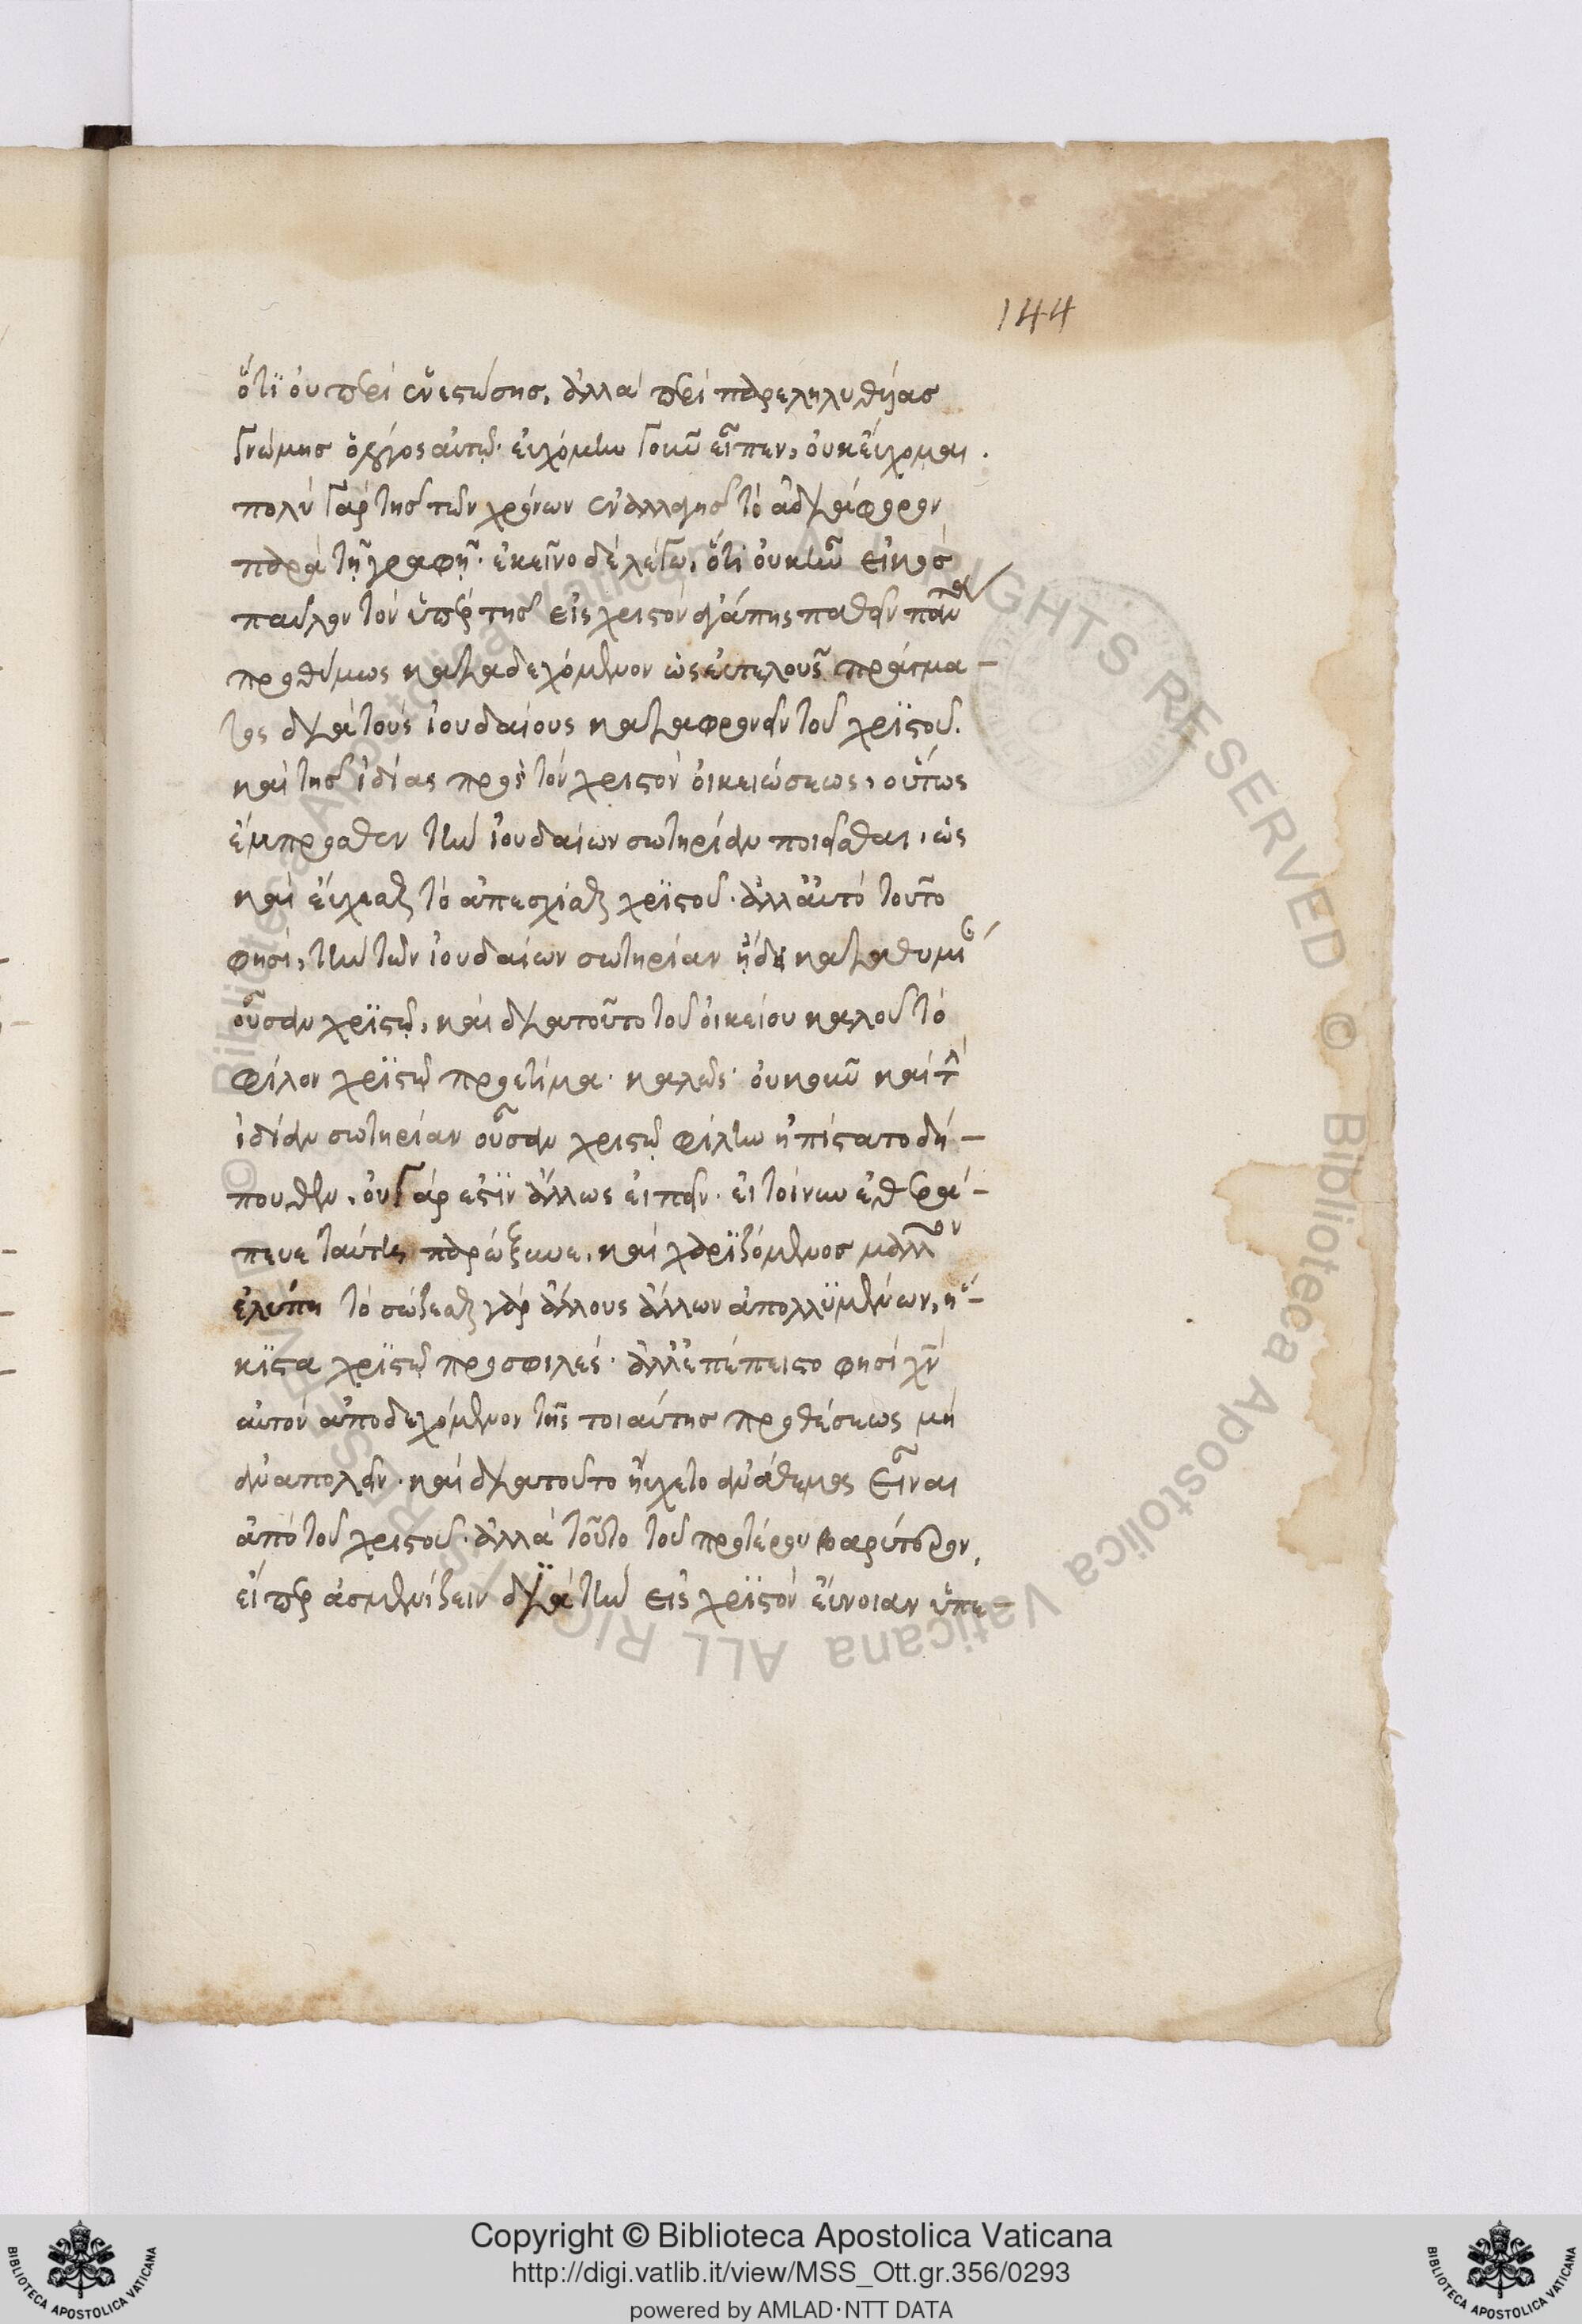 144
ὅτι οὐ περὶ ἐνεστώσης, ἀλλὰ περὶ παρεληλυθυίας
γνώμης ὁ λόγος αὐτῷ· εὐχόμην γοῦν εἶπεν, οὐκ εὔχομαι.
πολὺ γὰρ τῆς τῶν χρόνων ἐναλλαγῆς τὸ ἀδιάφορον
παρὰ τῇ γραφῇ· ἐκεῖνο δὲ λέγω, ὅτι οὐκ ἦν εἰκὸς
παῦλον τὸν ὑπὲρ τῆς εἰς χριστὸν ἀγάπης παθεῖν πάντα
προθύμως καταδεχόμενον ὡς εὐτελοῦς πράγμα-
τος διὰ τοὺς ἰουδαίους καταφρονεῖν τοῦ χριστοῦ.
καὶ τῆς ἰδίας πρὸς τὸν χριστὸν οἰκειώσεως, οὕτως
ἔμπροσθεν τὴν ἰουδαίων σωτηρίαν ποιεῖσθαι, ὡς
καὶ εὔχεσθαι τὸ ἀπεσχίσθαι χριστοῦ· ἀλλ' αὐτὸ τοῦτο
φησὶ, τὴν τῶν ἰουδαίων σωτηρίαν ᾔδει καταθύμιον
οὖσαν χριστῷ, καὶ διατοῦτο τοῦ οἰκείου καλοῦ τὸ
φίλον χριστῷ προετίμα· καλῶς· οὐκοῦν καὶ τὴν
ἰδίαν σωτηρίαν οὖσαν χριστῷ φίλην ἠπίστατο δή-
πουθεν, οὐ γάρ ἐστιν ἄλλως εἰπεῖν· εἰ τοίνυν ἐθερά-
πευε ταύτῃ παρώξυνε, καὶ χαριζόμενος μᾶλλον
ἐλύπει τὸ σώζεσθαι γὰρ ἄλλους ἄλλων ἀπολλυμένων, ἥ-
κιστα χριστῷ προσφιλές· ἀλλ' ἐπέπειστο φησὶ χν
αὐτὸν ἀποδεχόμενον τῆς τοιαύτης προθέσεως μὴ
ἂν ἀπολεῖν· καὶ διατοῦτο ηὔχετο ἀνάθεμα εἶναι
ἀπὸ τοῦ χριστοῦ· ἀλλὰ τοῦτο τοῦ προτέρου βαρύτερον,
εἴπερ ἀσμενίζειν διὰ τὴν εἰς χριστὸν εὔνοιαν ὑπε-
Copyright © Biblioteca Apostolica Vaticana
http://digi.vatlib.it/view/MSS_Ott.gr.356/0293
powered by AMLAD·NTT DATA
BIBLIOTECA APOSTOLICA VATICANA
BIBLIOTECA APOSTOLICA VATICANA
© Biblioteca Apostolica Vaticana ALL RIGHTS RESERVED © Biblioteca Apostolica Vaticana ALL RIGHTS RESERVED